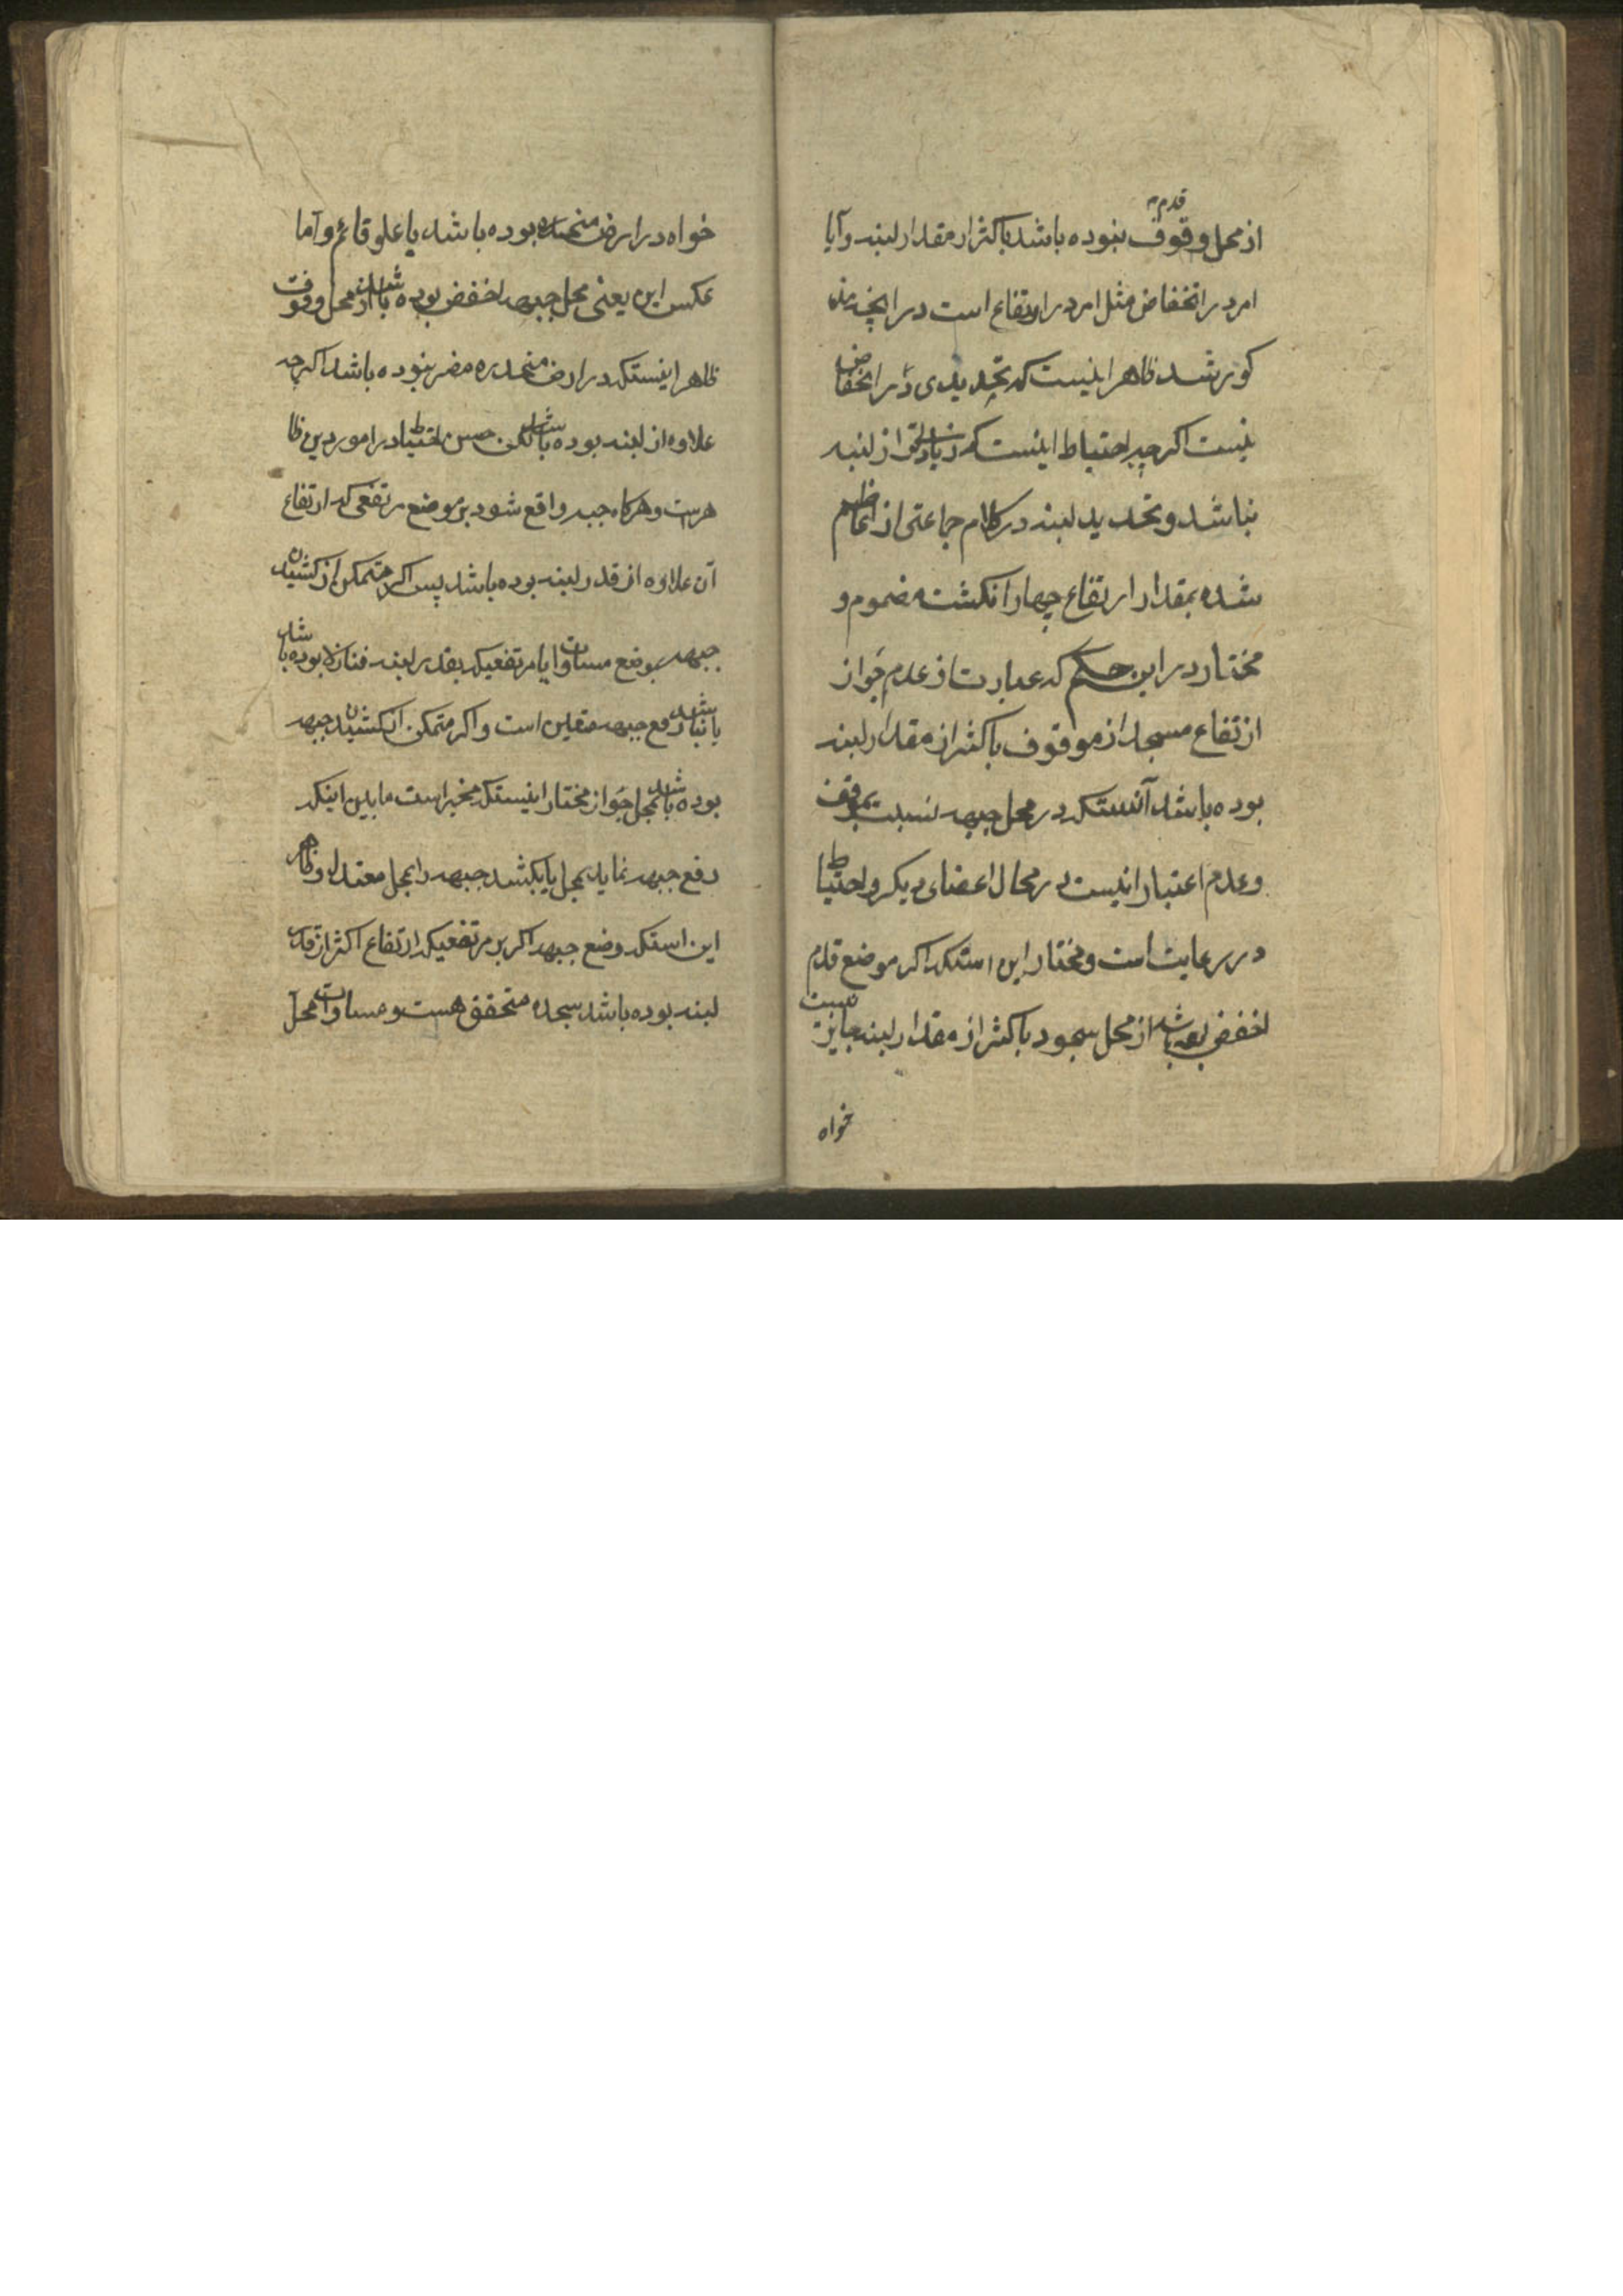 قدم
از محل وقوف نبوده باشد باکثر از مقدار لبنه و آیا
امر در انخفاض مثل امر در ارتفاع است در آنچه مذ
کور شد ظاهر اینست که تحدیدی در انخفاض
نیست اگر چه احتیاط اینست که زیادتر از لبنه
نباشد و تحدید لبنه در کلام جماعتی از اعاظم
شده بمقدار ارتفاع چهار انکشت مضموم و
مختار در این حکم که عبارت از عدم جواز
ارتفاع مسجد از موقوف باکثر از مقدار لبنه
بوده باشد آنستکه در محل جبهه نسبت بموقف
و عدم اعتبار اینست در محال اعضای دیکر و احتیاط
در رعایت است و مختار این استکه اکر موضع قدم
اخفض بوده باشد از محل سجود باکثر از مقدار لبنه جایز نیست
خواه
خواه در ارض منحدره بوده باشد یا علو قائم و اما
عکس این یعنی محل جبهه اخفض بوده باشد از محل وقوف
ظاهر اینستکه در ارض منحدره مضر نبوده باشد اکر چه
علاوه از لبنه بوده باشد لکن حسن احتیاط در امور دین ظا
هر است و هرکاه جبهه واقع شود بر موضع مرتفعی که ارتفاع
آن علاوه از قدر لبنه بوده باشد پس اکر متمکن از کشیدن
جبهه بموضع مساوات یا مرتفعیکه بقدر لبنه فنازلا بوده باشد
یا نباشد رفع جبهه متعین است و اکر متمکن از کشیدن جبهه
بوده باشد بمحل جواز مختار اینستکه مخیر است مابین اینکه
رفع جبهه نماید بمحل یا بکشد جبهه را بمحل معتدل و ظاهر
این استکه وضع جبهه اکر بر مرتفعیکه ارتفاع اکثر از قدر
لبنه بوده باشد سجده متحقق هست و مساوات محل